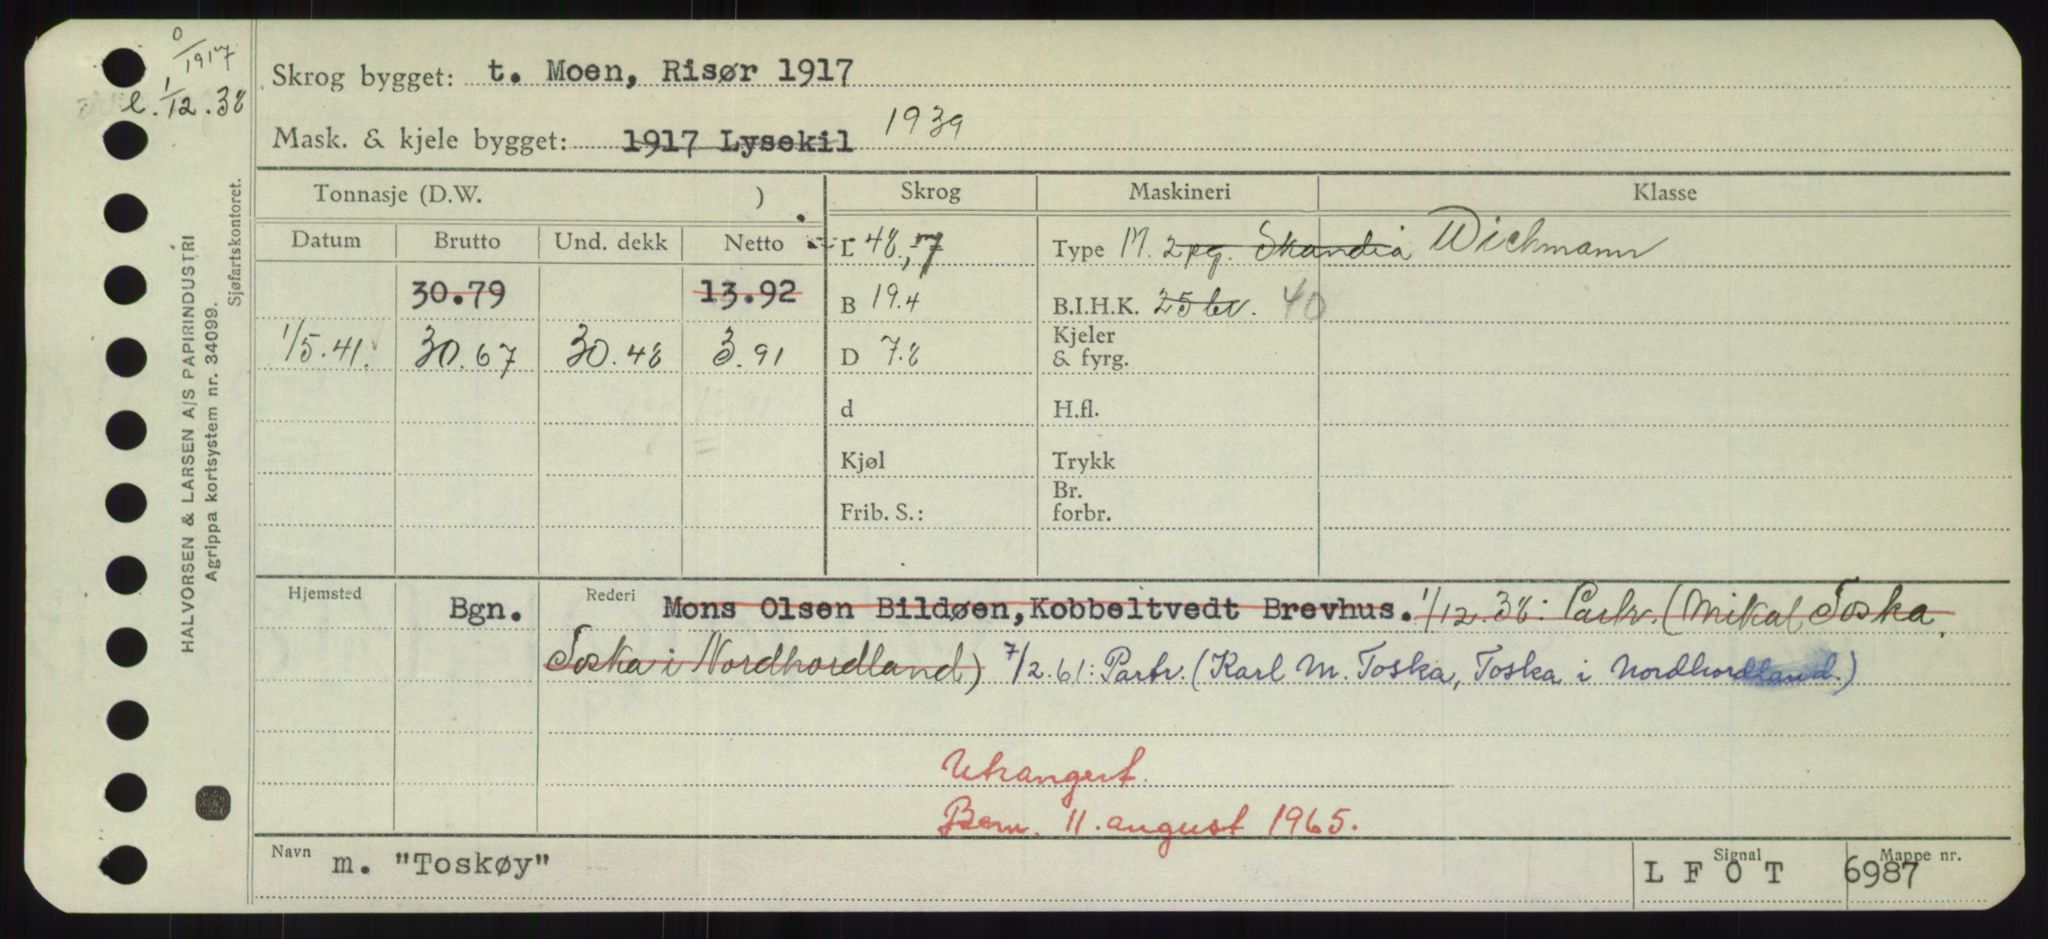 0/1917
e. 1/12.38
Skrog bygget: t. Moen, Risør 1917
Mask. & kjele bygget: 1917 Lysekil 1939
Tonnasje (D.W. ) Skrog Maskineri Klasse
Datum Brutto Und. dekk Netto L 48,7 Type M. 2 pg. Skandia Wichmann
30.79 13.92 B 19.4 B.I.H.K. 25 br. 40
1/5.41. 30.67 30.48 3.91 D 7.8 Kjeler & fyrg.
d H.fl.
Kjøl Trykk
Frib. S.: Br. forbr.
Hjemsted Bgn. Rederi Mons Olsen Bildøen, Kobbeltvedt Brevhus. 1/12.38: Partr. (Mikal Toska,
Toska i Nordhordland) 7/2.61: Partr. (Karl M. Toska, Toska i Nordhordland.)
Utrangert.
Bem. 11. august 1965.
Navn m. "Toskøy" Signal L F O T Mappe nr. 6987
HALVORSEN & LARSEN A/S PAPIRINDUSTRI
Agrippa kortsystem nr. 34099.
Sjøfartskontoret.